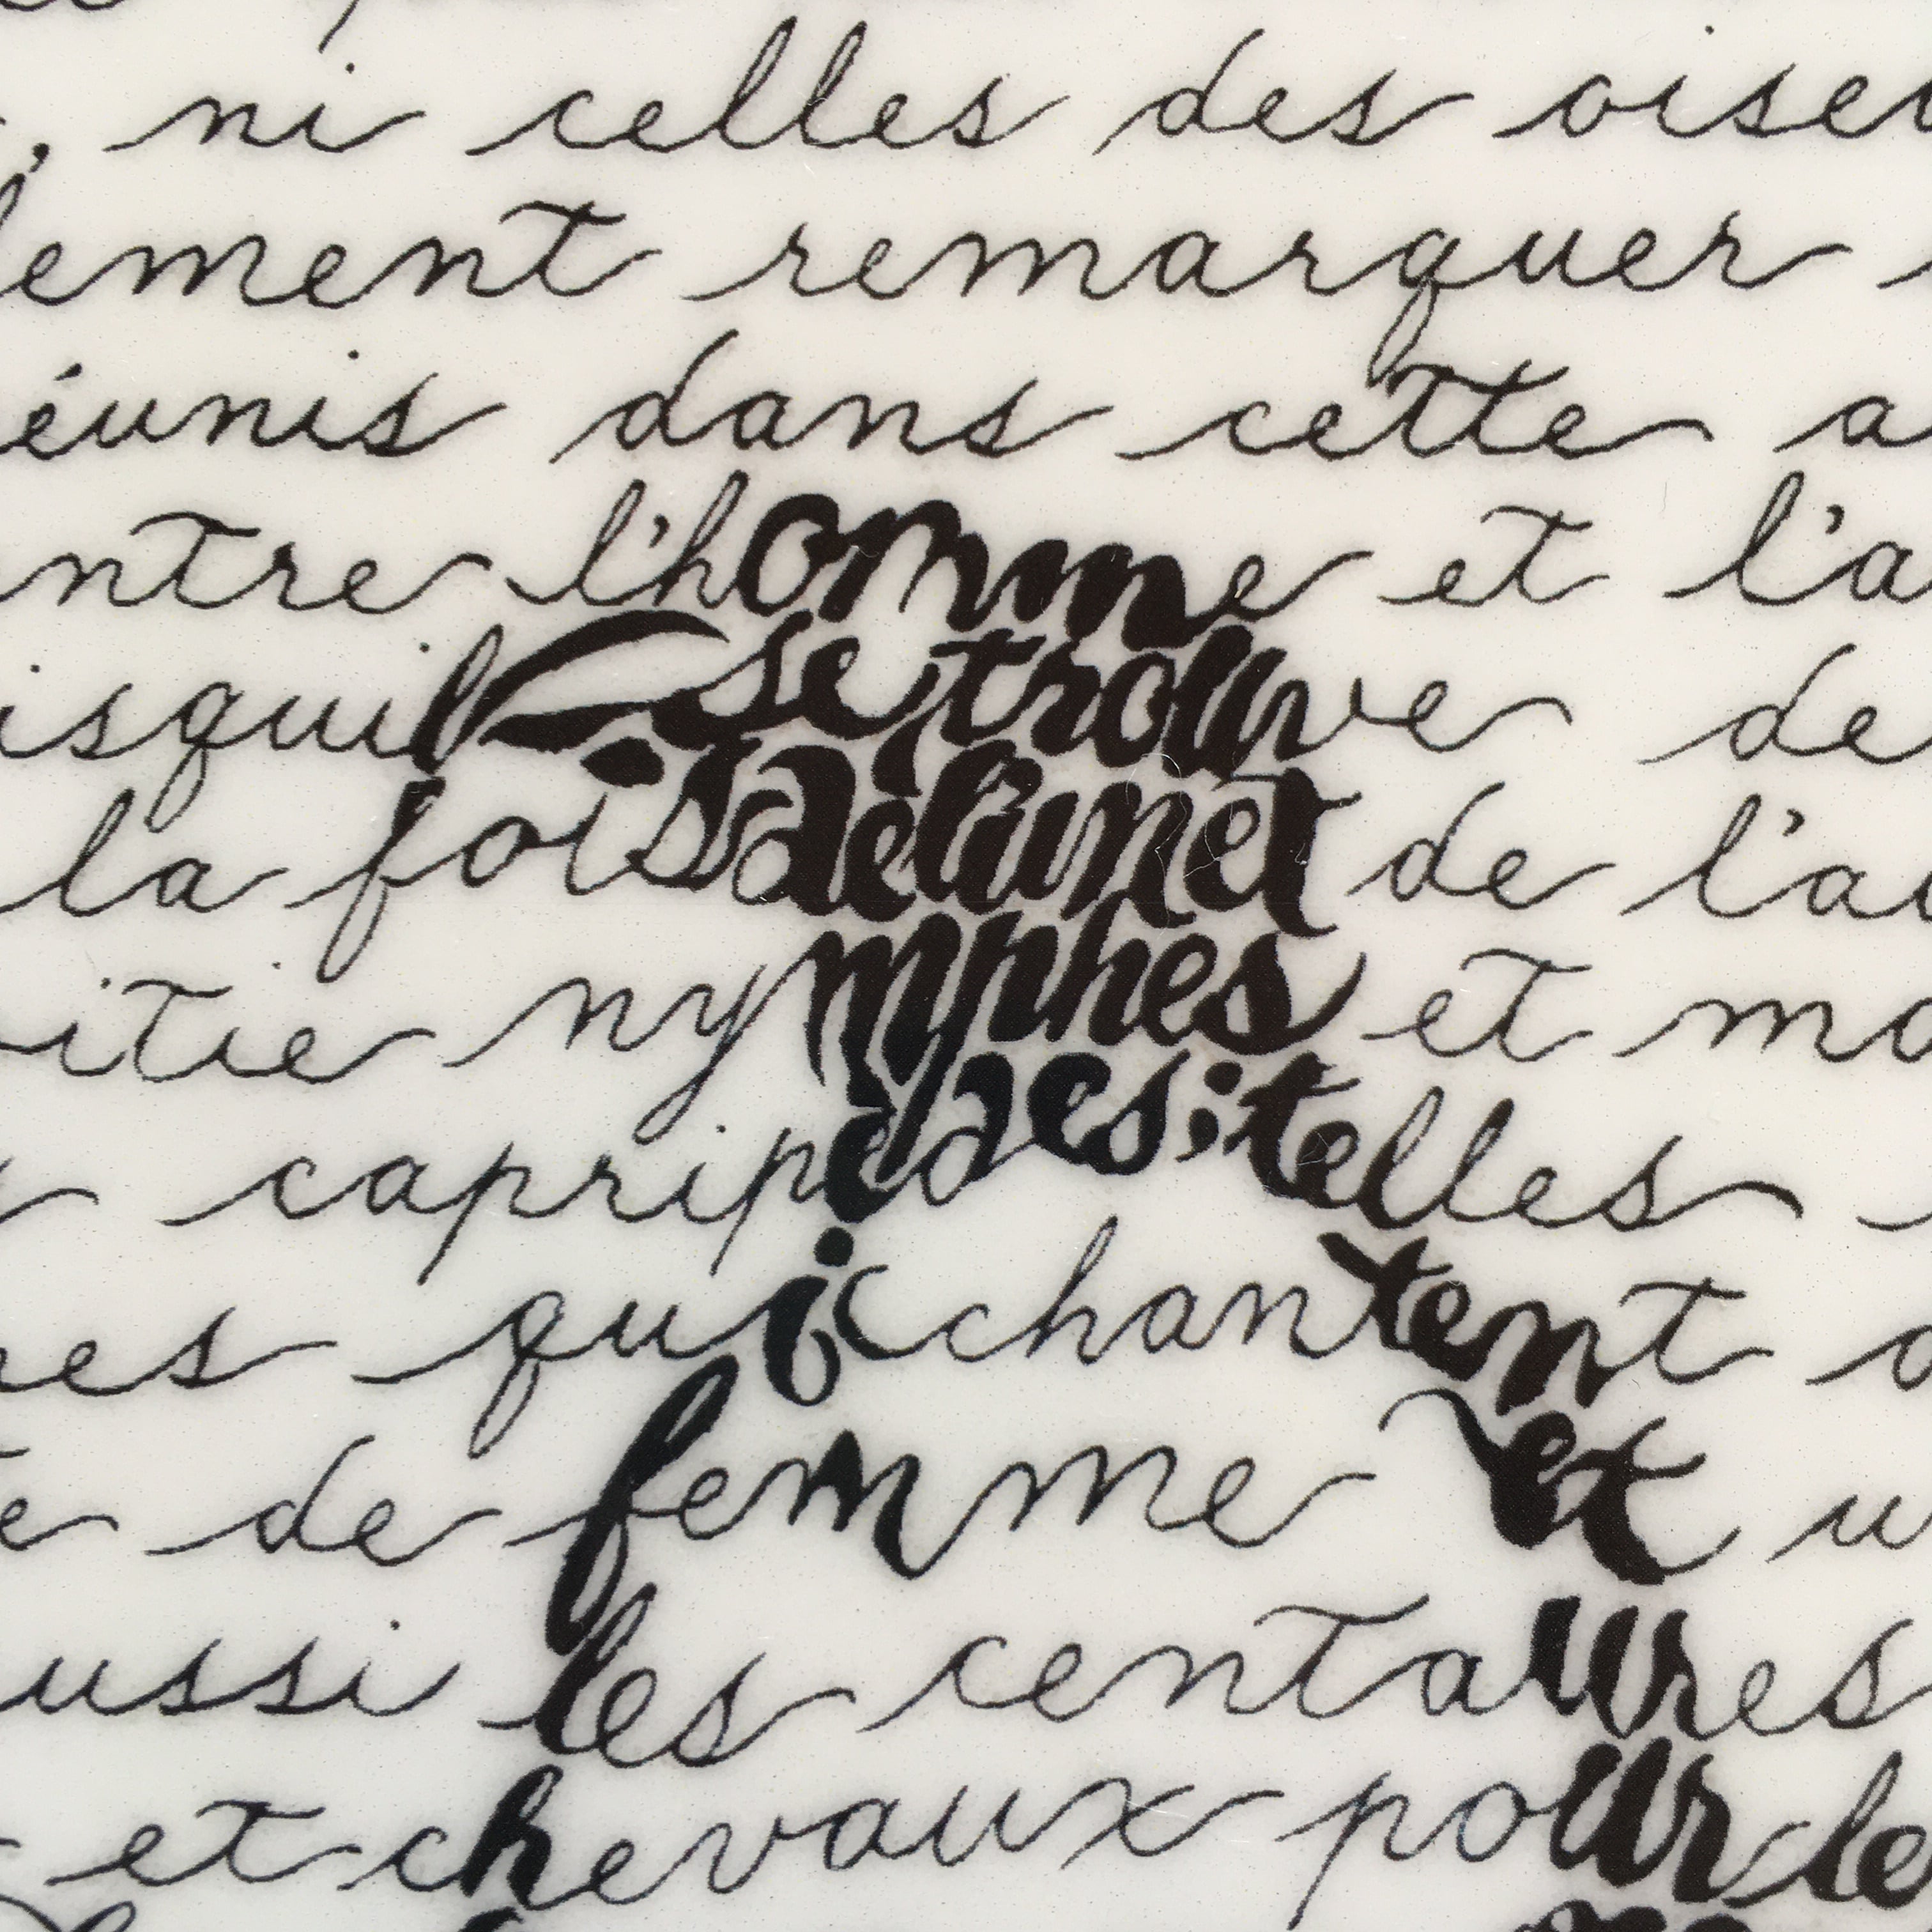 , ni celles des oiseu
lement remarquer
éunis dans cette a
ntre l'homme et l'a
isquil se trouve de
la fois de l'au
oitie nymphes et mo
capripèdes ; telles
nes qui chantent
te de femme et u
ussi les centaures
et chevaux pour le